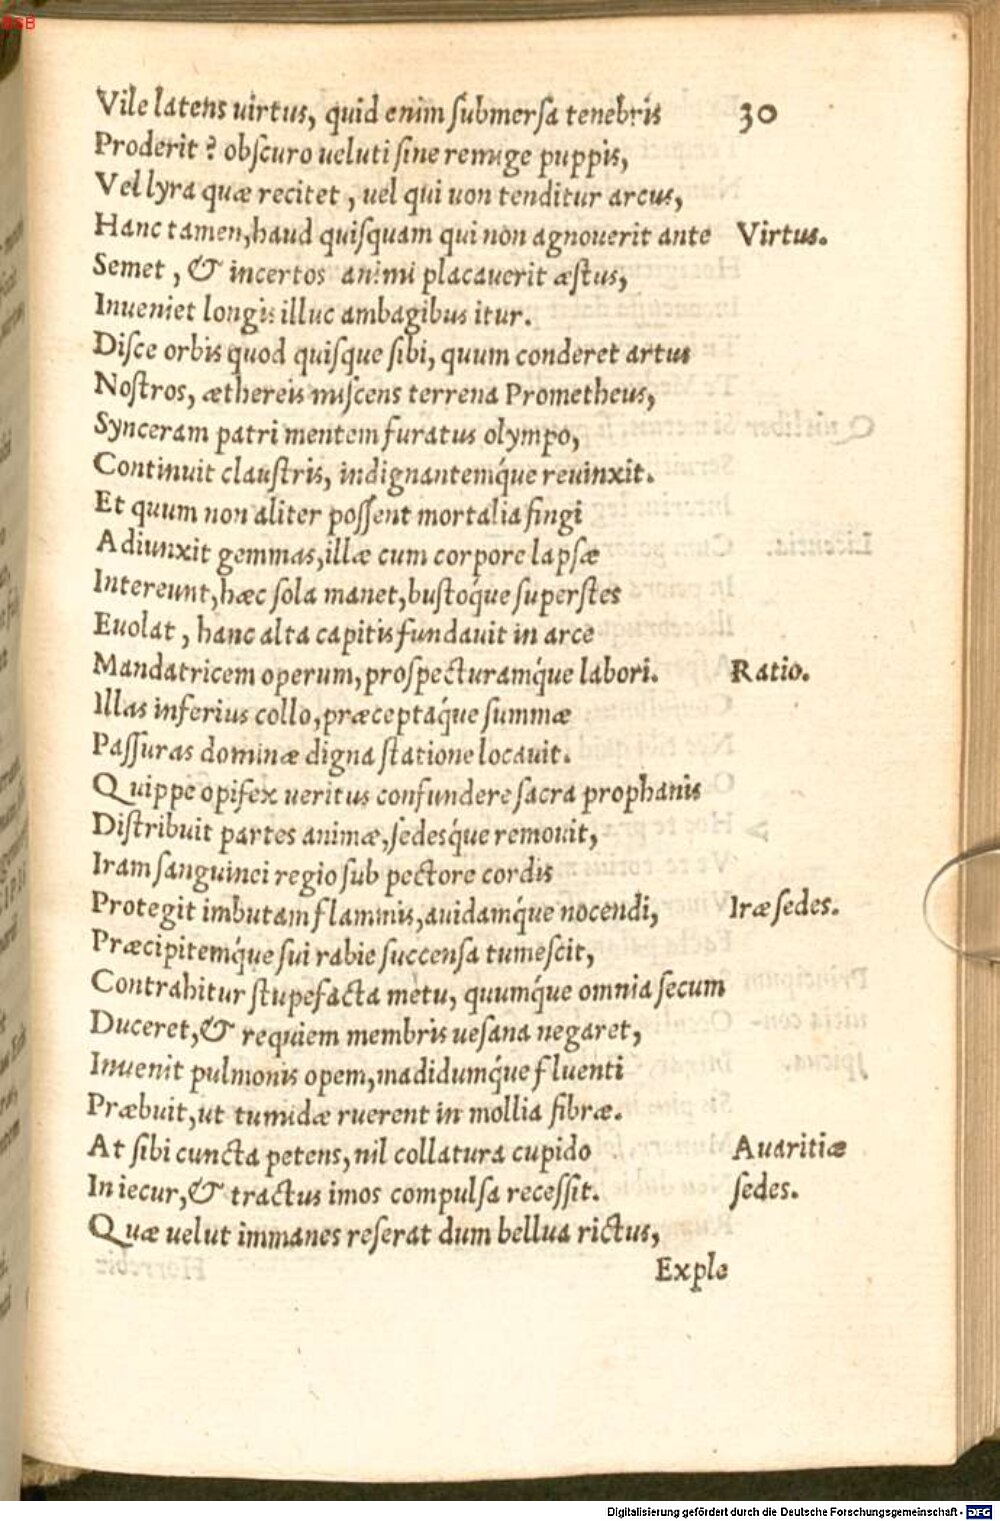 BSB
Vile latens uirtus, quid enim ſubmerſa tenebris 30
Proderit? obſcuro ueluti ſine remige puppis,
Vel lyra quæ recitet, uel qui uon tenditur arcus,
Hanc tamen, haud quiſquam qui non agnouerit ante Virtus.
Semet, & incertos animi placauerit æſtus,
Inueniet longis illuc ambagibus itur.
Diſce orbis quod quiſque ſibi, quum conderet artus
Noſtros, æthereis miſcens terrena Prometheus,
Synceram patri mentem furatus olympo,
Continuit clauſtris, indignantemq́ue reuinxit.
Et quum non aliter poſſent mortalia fingi
Adiunxit gemmas, illæ cum corpore lapſæ
Intereunt, hæc ſola manet, buſtoq́ue ſuperſtes
Euolat, hanc alta capitis fundauit in arce
Mandatricem operum, proſpecturamq́ue labori. Ratio.
Illas inferius collo, præceptaq́ue ſummæ
Paſſuras dominæ digna ſtatione locauit.
Quippe opifex ueritus confundere ſacra prophanis
Diſtribuit partes animæ, ſedesq́ue remouit,
Iram ſanguinei regio ſub pectore cordis
Protegit imbutam flammis, auidamq́ue nocendi, Iræ ſedes.
Præcipitemq́ue ſui rabie ſuccenſa tumeſcit,
Contrahitur ſtupefacta metu, quumq́ue omnia ſecum
Duceret, & requiem membris ueſana negaret,
Inuenit pulmonis opem, madidumq́ue fluenti
Præbuit, ut tumidæ ruerent in mollia fibræ.
At ſibi cuncta petens, nil collatura cupido Auaritiæ
In iecur, & tractus imos compulſa receſſit. ſedes.
Quæ uelut immanes reſerat dum bellua rictus,
Exple
Digitalisierung gefördert durch die Deutsche Forschungsgemeinschaft - DFG